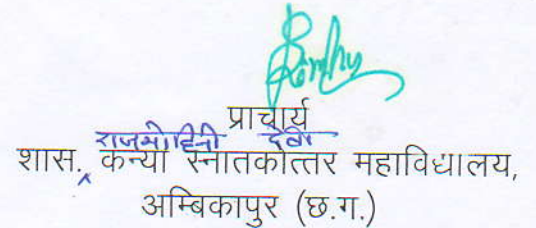 प्राचार्य
राजमोहिनी देवी
शास. कन्या स्नातकोत्तर महाविद्यालय,
अम्बिकापुर (छ.ग.)